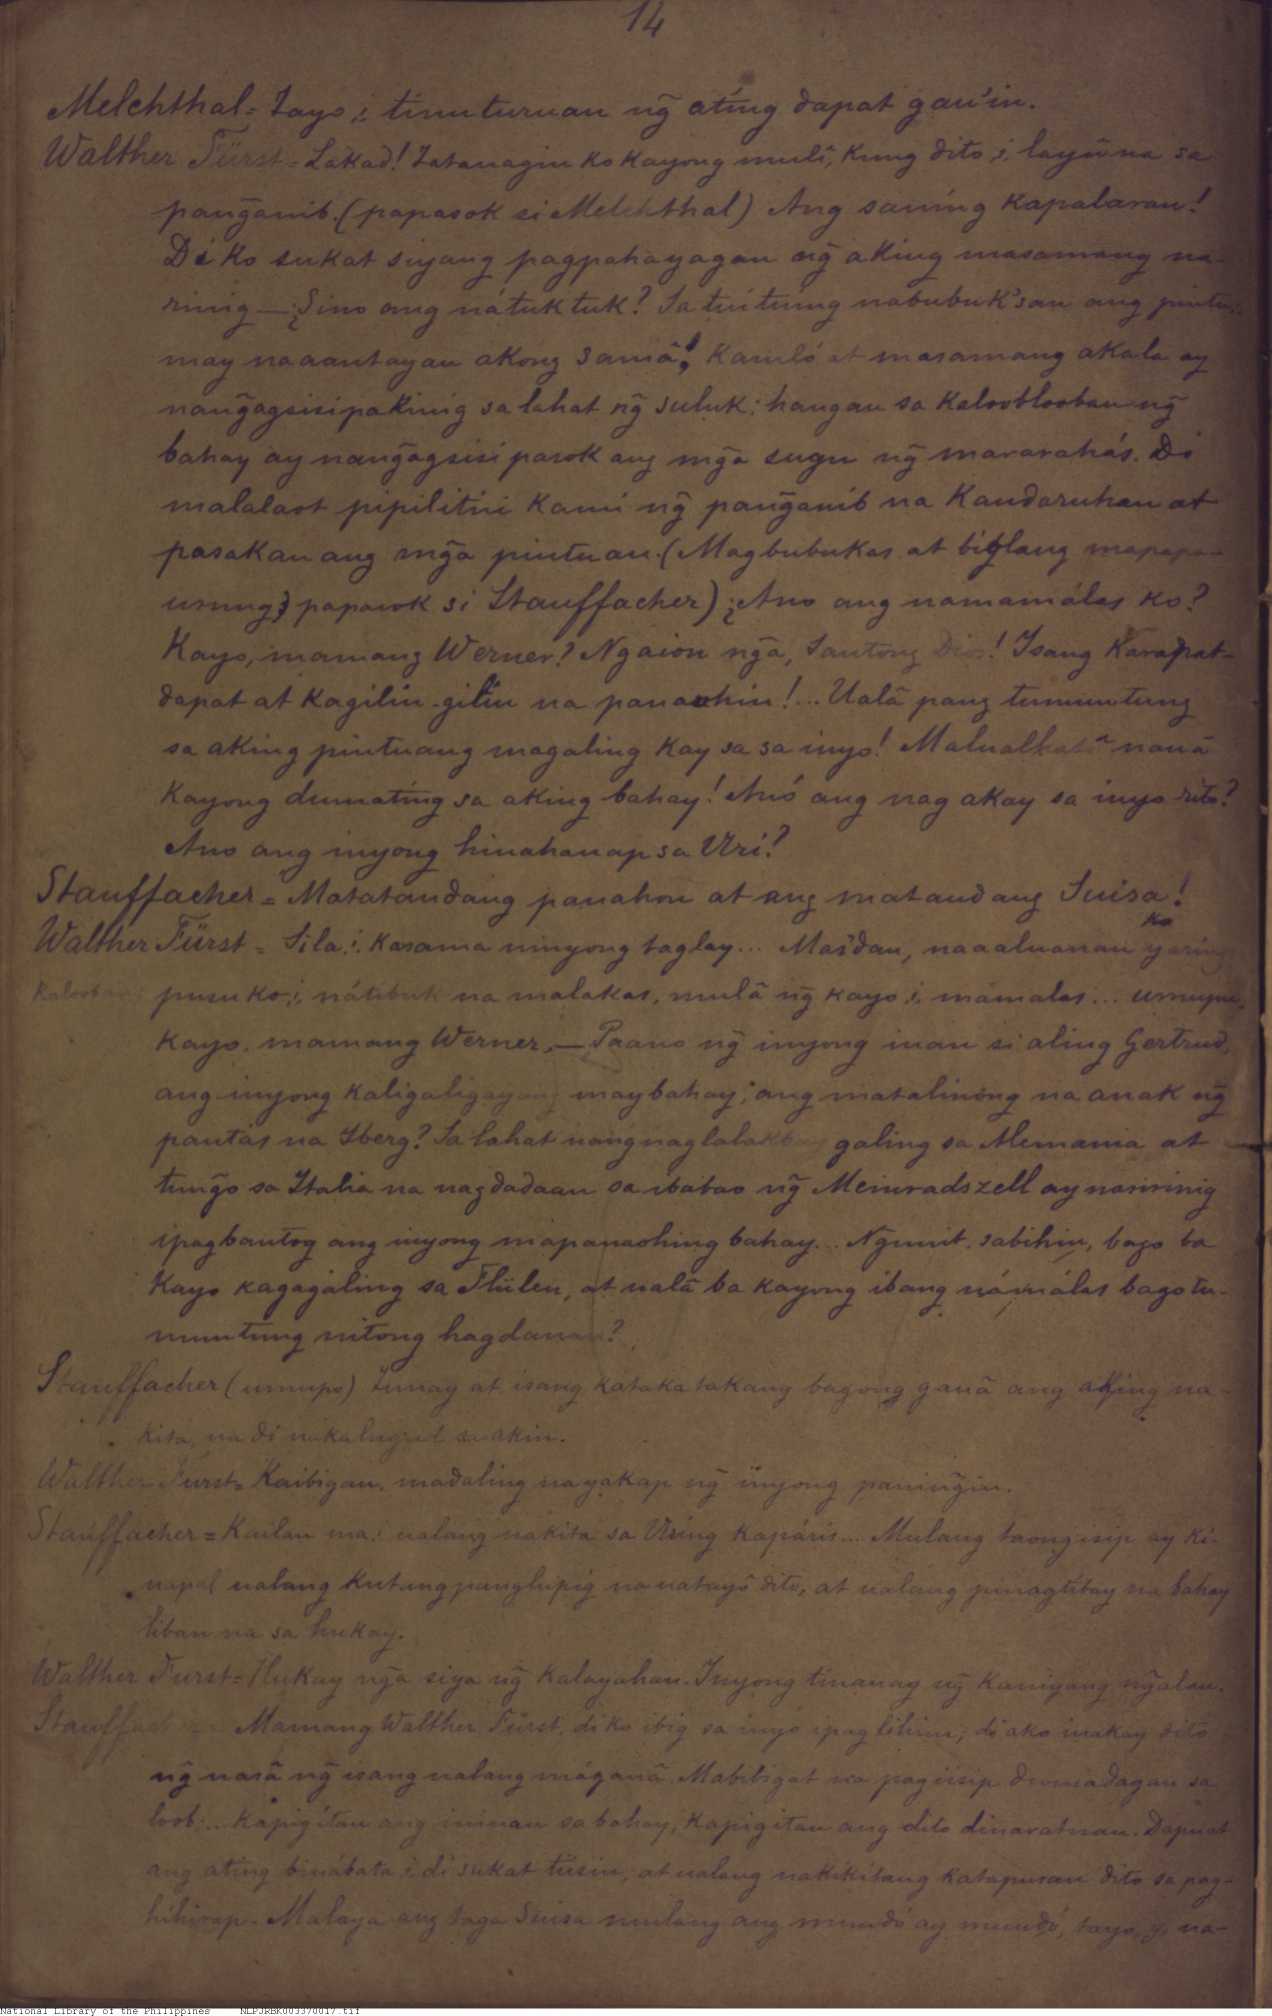 14
Melchthal = Tayo ,i, tinuturuan ng̃ ating dapat gau'in.
Walther Fürst = Lákad! Tatanagin ko kayong mulî, kung dito ,i, layũ na sa
pang̃anib. (papasok si Melchthal) Ang sauíng kapalaran!
Di ko sukat siyang pagpahayagan ng̃ aking masamang na-
rinig — ¿Sino ang nátuktuk? Sa tuituing nabubuk'san ang pintu,
may naaantayan akong samâ! Kaniló at masamang akala ay
nang̃agsisipakinig sa lahat ng̃ suluk; hangan sa kalooblooban ng̃
bahay ay nang̃agsisipasok ang mg̃a sugu ng̃ mararahás. Di
malalaot pipilitin kami ng̃ pang̃anib na kandaruhan at
pasakan ang mg̃a pintuan. (Magbubukas at biglang mapapa-
urung, papasok si Stauffacher) ¿Ano ang namamálas ko?
Kayo, mamang Werner? Ngaion ng̃a, Santong Dios! Isang karapat-
dapat at kagilin-gilin na panauhin! ... Ualâ pang tumuntung
sa aking pintuang magaling kay sa sa inyo! Malualhatiˆ nauâ
kayong dumating sa aking bahay! Anó ang nag akay sa inyo rito?
Ano ang inyong hinahanap sa Uri?
Stauffacher = Matatandang panahon at ang matandang Suisa!
Walther Fürst = Sila ,i, kasama ninyong taglay... Mas'dan, naaaluanan ko yaring
kalooban; pusu ko ,i, nátibuk na malakas, mulâ ng̃ kayo ,i, mámalas ... umupu
kayo, mamang Werner, — Paano ng̃ inyong iuan si aling Gertrud,
ang inyong kaligaligayang maybahay; ang matalinóng na anak ng̃
pantás na Iberg? Sa lahat nang naglalakbay galing sa Alemania at
tung̃o sa Italia na nagdadaan sa ibabao ng̃ Meinradszell ay naririnig
ipagbantog ang inyong mapanaohing bahay... Ng̃unit, sabihin, bago ba
kayo kagagáling sa Flülen, at ualâ ba kayong ibang námálas bago tu-
muntung nitong hagdanan?
Stauffacher (umupo) Tunay at isang kataka takang bagong gauâ ang aking na-
kita, na di nakalugud sa akin.
Walther Furst = Kaibigan, madaling nayakap ng̃ inyong paning̃in.
Stauffacher = Kailan ma,i ualang nakita sa Uring kapáris... Mulang taong isip ay ki-
napal ualang kutang panglupig na natayô dito, at ualang pinagtibay na bahay
liban na sa hukay.
Walther Furst = Hukay ng̃a siya ng̃ kalayahan. Inyong tinanay ng̃ kaniyang ng̃alan.
Stauffacher = Mamang Walther Fürst, di ko ibig sa inyo ipaglihim; di ako inakay dito
ng̃ nasâ ng̃ isang ualang mágauâ. Mabibigat na pagiisip dumadagan sa
loob... Kapigitan ang iniuan sa bahay, kapigitan ang dito dinaratnan. Dapuat
ang ating binábata ,i, di sukat tiisin, at ualang nakikitang katapusan dito sa pag-
hihirap. Malaya ang taga Suisa mulang ang mundó ay mundó, tayo ,y, na-
National Library of the Philippines NLPJRBK003370017.tif